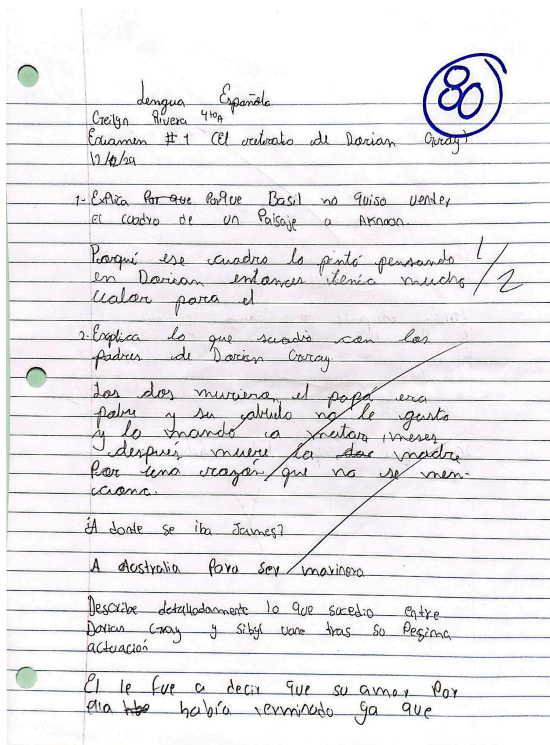 80
Lengua Española
Creilyn Rivera 4toA
Examen #1 (El retrato de Dorian Gray)
12/12/29
1- Explica Por que Porque Basil no quiso vender
el cuadro de un Paisaje a
Porqué ese cuadro lo pintó pensando
en Dorian entonces tenía mucho
valor para el
1/2
2- Explica lo que sucedio con los
padres de Dorian Gray
Los dos muriero, el papá era
pobre y su abuelo no le gusto
y lo mando a matar, meses
después muere la madre
Por una razón que no se men-
ciona.
¿A donde se iba James?
A Australia Para ser marinero
Describe detalladamente lo que sucedio entre
Dorian Gray y Sibyl vane tras su Pesima
actuación
El le fue a decir que su amor Por
ella había terminado ya que